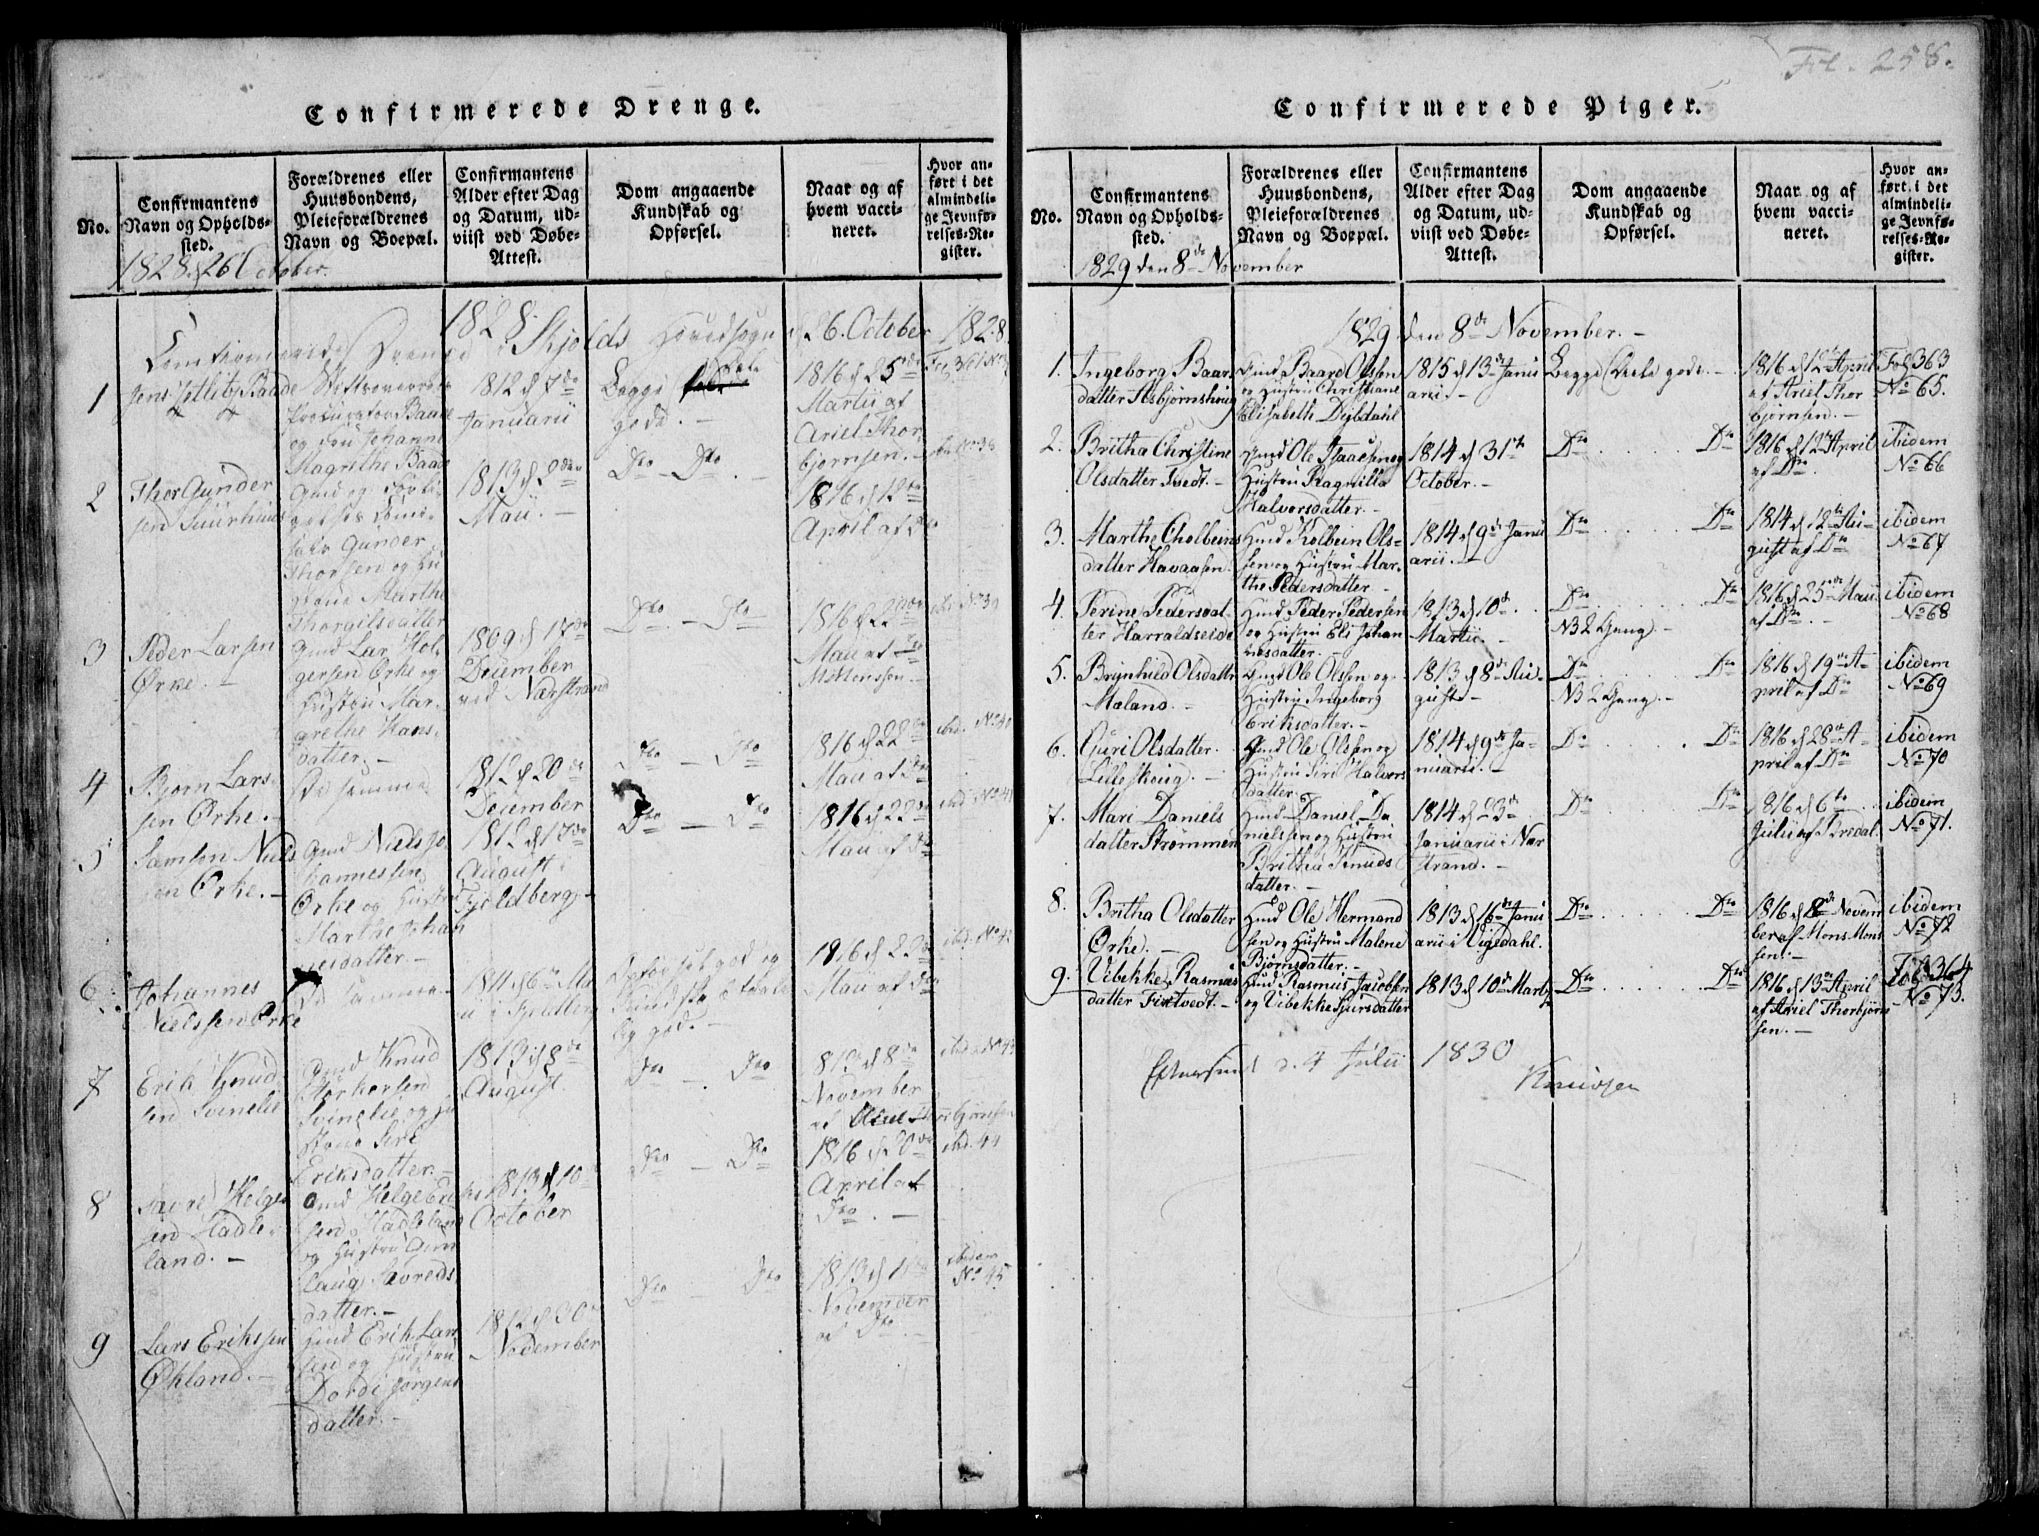 Fol. 258.
Confirmerede Drenge.
No.
Confirmantens
Navn og Opholds-
sted.
Forældrenes eller
Huusbondens,
Pleieforældrenes
Navn og Boepæl.
Confirmantens
Alder efter Dag
og Datum, ud-
viist ved Døbe-
Attest.
Dom angaaende
Kundskab og
Opførsel.
Naar og af
hvem vacci-
neret.
Hvor an-
ført i det
Almindeli-
ge Jevnfø-
relses-Re-
gister.
1828 d 26 October.
1828 Skjolds Hovedsogn d 26. October 1828
Confirmerede Drenge
1
Jens Gotlib Baade
Stiftsoverrets
Procurator Baade
og Frue Johanne
Magrethe Baade
1812 d 7de
Januarii
Begge
gode. -
1816 d 25de
Martii af
Ariel Thor-
bjørnsen. -
2
Thor Gunder
sen
Gmd og Forli-
gelses Comi-
sair Gunder
Thorsen og Hu-
strue Marthe
Thorgilsdatter
1813 d 2den
Maii. -
Dto - Dto. -
1816 d 12te
April af Dto
ibd. No 38
3
Peder Larsen
Ørke. -
Gmd Lar. Hol-
gersen Ørke og
Hustru Mar-
grethe Hans-
datter. -
1809 d 17de
December
ved Nærstrand
Dto. - Dto
1816 d 22de
Maii af
Mortenssen.
ibd. No 39
4
Bjørn Lars-
sen Ørke. -
De samme
1812 d 20de
December
Dto - Dto
1816 d 22de
Maii af Dto
ibd. No 40
5
Samson Niels
sen Ørke. -
Gmd Niels Jo-
hannessen
Ørke og Hustru
Marthe Johan
nesdatter. -
1812 d 17de
August
Fjeldberg -
Dto - Dto
1816 d 22de
Maii af Dto
ibd. No 41
6
Johannes
Nielssen Ørke
De samme
1811 d 6te Ma
ii i Fjeldberg
Opførsel god og
Kundskab taale
lig god. -
1816 d 22de
Maii af Dto
ibd. No 42
7
Erik Knud
sen Svinelie
Gmd Knud
Størkorsen
Svinelie og Hu
strue Siri
Eriksdatter. -
1813 d 8de
August.
Dto - Dto
1813 d 8de
November
af Ariel Thorbjørnsen
ibd. No 43
8
Savre Helge
sen Hadle-
land. -
Gmd Helge Erik
sen Hadleland
og Hustru Gun
laug Savreds
datter. -
1813 d 10
October
Dto - Dto
1816 d 20de
April af
Dto. -
ibd. 44
9
Lars Erikssen
Økland. -
Gmd Erik Lar
sen og Hustru
Dordi Jørgens
datter. -
1812 d 30te
November
Dto - Dto
1813 d
November
af Dto. -
ibidem
No 45
Confirmerede Piger.
No.
Confirmantens
Navn og Opholds-
sted.
Forældrenes eller
Huusbondens,
Pleieforældrenes
Navn og Boepæl.
Confirmantens
Alder efter Dag
og Datum, ud-
viist ved Døbe-
Attest.
Dom angaaende
Kundskab og
Opførsel.
Naar og af
hvem vacci-
neret.
Hvor an-
ført i det
almindeli-
ge Jevnfø-
relses-Re-
gister.
1829 den 8de November
1829 den 8de November. -
1.
Ingeborg Baar
datter Asbjørnshoug
Gmd Baard Olsen
og Hustru Christiane
Elisabeth Dyfdahl
1815 d 13de Janu
arii. -
Begge Deele gode. -
1816 d 12te April
af Ariel Thor
bjørnsen. -
Fol 363
No 65.
2.
Britha Christine
Olsdatter Tvedt. -
Gmd Ole Isaacsen og
Hustru Ragnilla
Halvorsdatter. -
1814 d 31te
October. -
Do . . . . . Do
1816 d 12te April
af Do.
ibidem
No 66
3.
Marthe Cholbeins
datter Havaasen.
Gmd Kolbein Ols-
sen og Hustru Mar-
the Pedersdatter. -
1814 d 9de Janu
arii. -
Do . . . . . Do
1814 d 12te Au-
gust af Do
ibidem
No 67
4.
Serine Pedersdat-
ter Harraldseide
Hmd Peder Pedersen
og Hustru Eli Johan
nesdatter. -
1813 d 10de .
Martii. -
Do . . . . . Do
NB 2 Gang. -
1816 d 25de Maii
af Do. -
ibidem
No 68
5.
Brynhild Olsdatter
Moland. -
Gmd Ole Olssen og
Hustru Ingeborg
Eriksdatter. -
1813 d 8de Au-
gust -
Do . . . . . Do
NB 2 Gang. -
1816 d 19de A-
pril af Do
ibidem
No 69
6.
Guri Olsdatter
Lilleskoug. -
Gmd Ole Olssen og
Hustru Siri Halvors
datter. -
1814 d 9de Ja-
nuarii. -
Do . . . . . Do
1816 d 28de A-
pril af Do
ibidem
No 70
7.
Mari Daniels
datter Strømmen
Hmd Daniel Da
nielssen og Hustru
Britha Knuds
datter. -
1814 d 23de
Januarii i Nær
strand. -
Do . . . . . Do
1816 d 6te
Julii af Bredal.
ibidem
No 71.
8.
Britha Olsdatter
Ørke. -
Hmd Ole Hermand
sen og Hustru Malene
Bjørnsdatter. -
1813 d 16de Janu
arii i Vigedahl.
Do . . . . . Do
1816 d 8de Novem
ber af Mons Mons
sen. -
ibidem
No 72
9.
Vibekke Rasmus
datter Fixtvedt. -
Gmd Rasmus Jacobsen
og Vibekke Sjursdatter
1813 d 10de Marty
Do . . . . . Do
1816 d 13de April
af Ariel Thorbjørn
sen. -
Fol 364
No 73.
Efterseet d. 4 Julii 1830